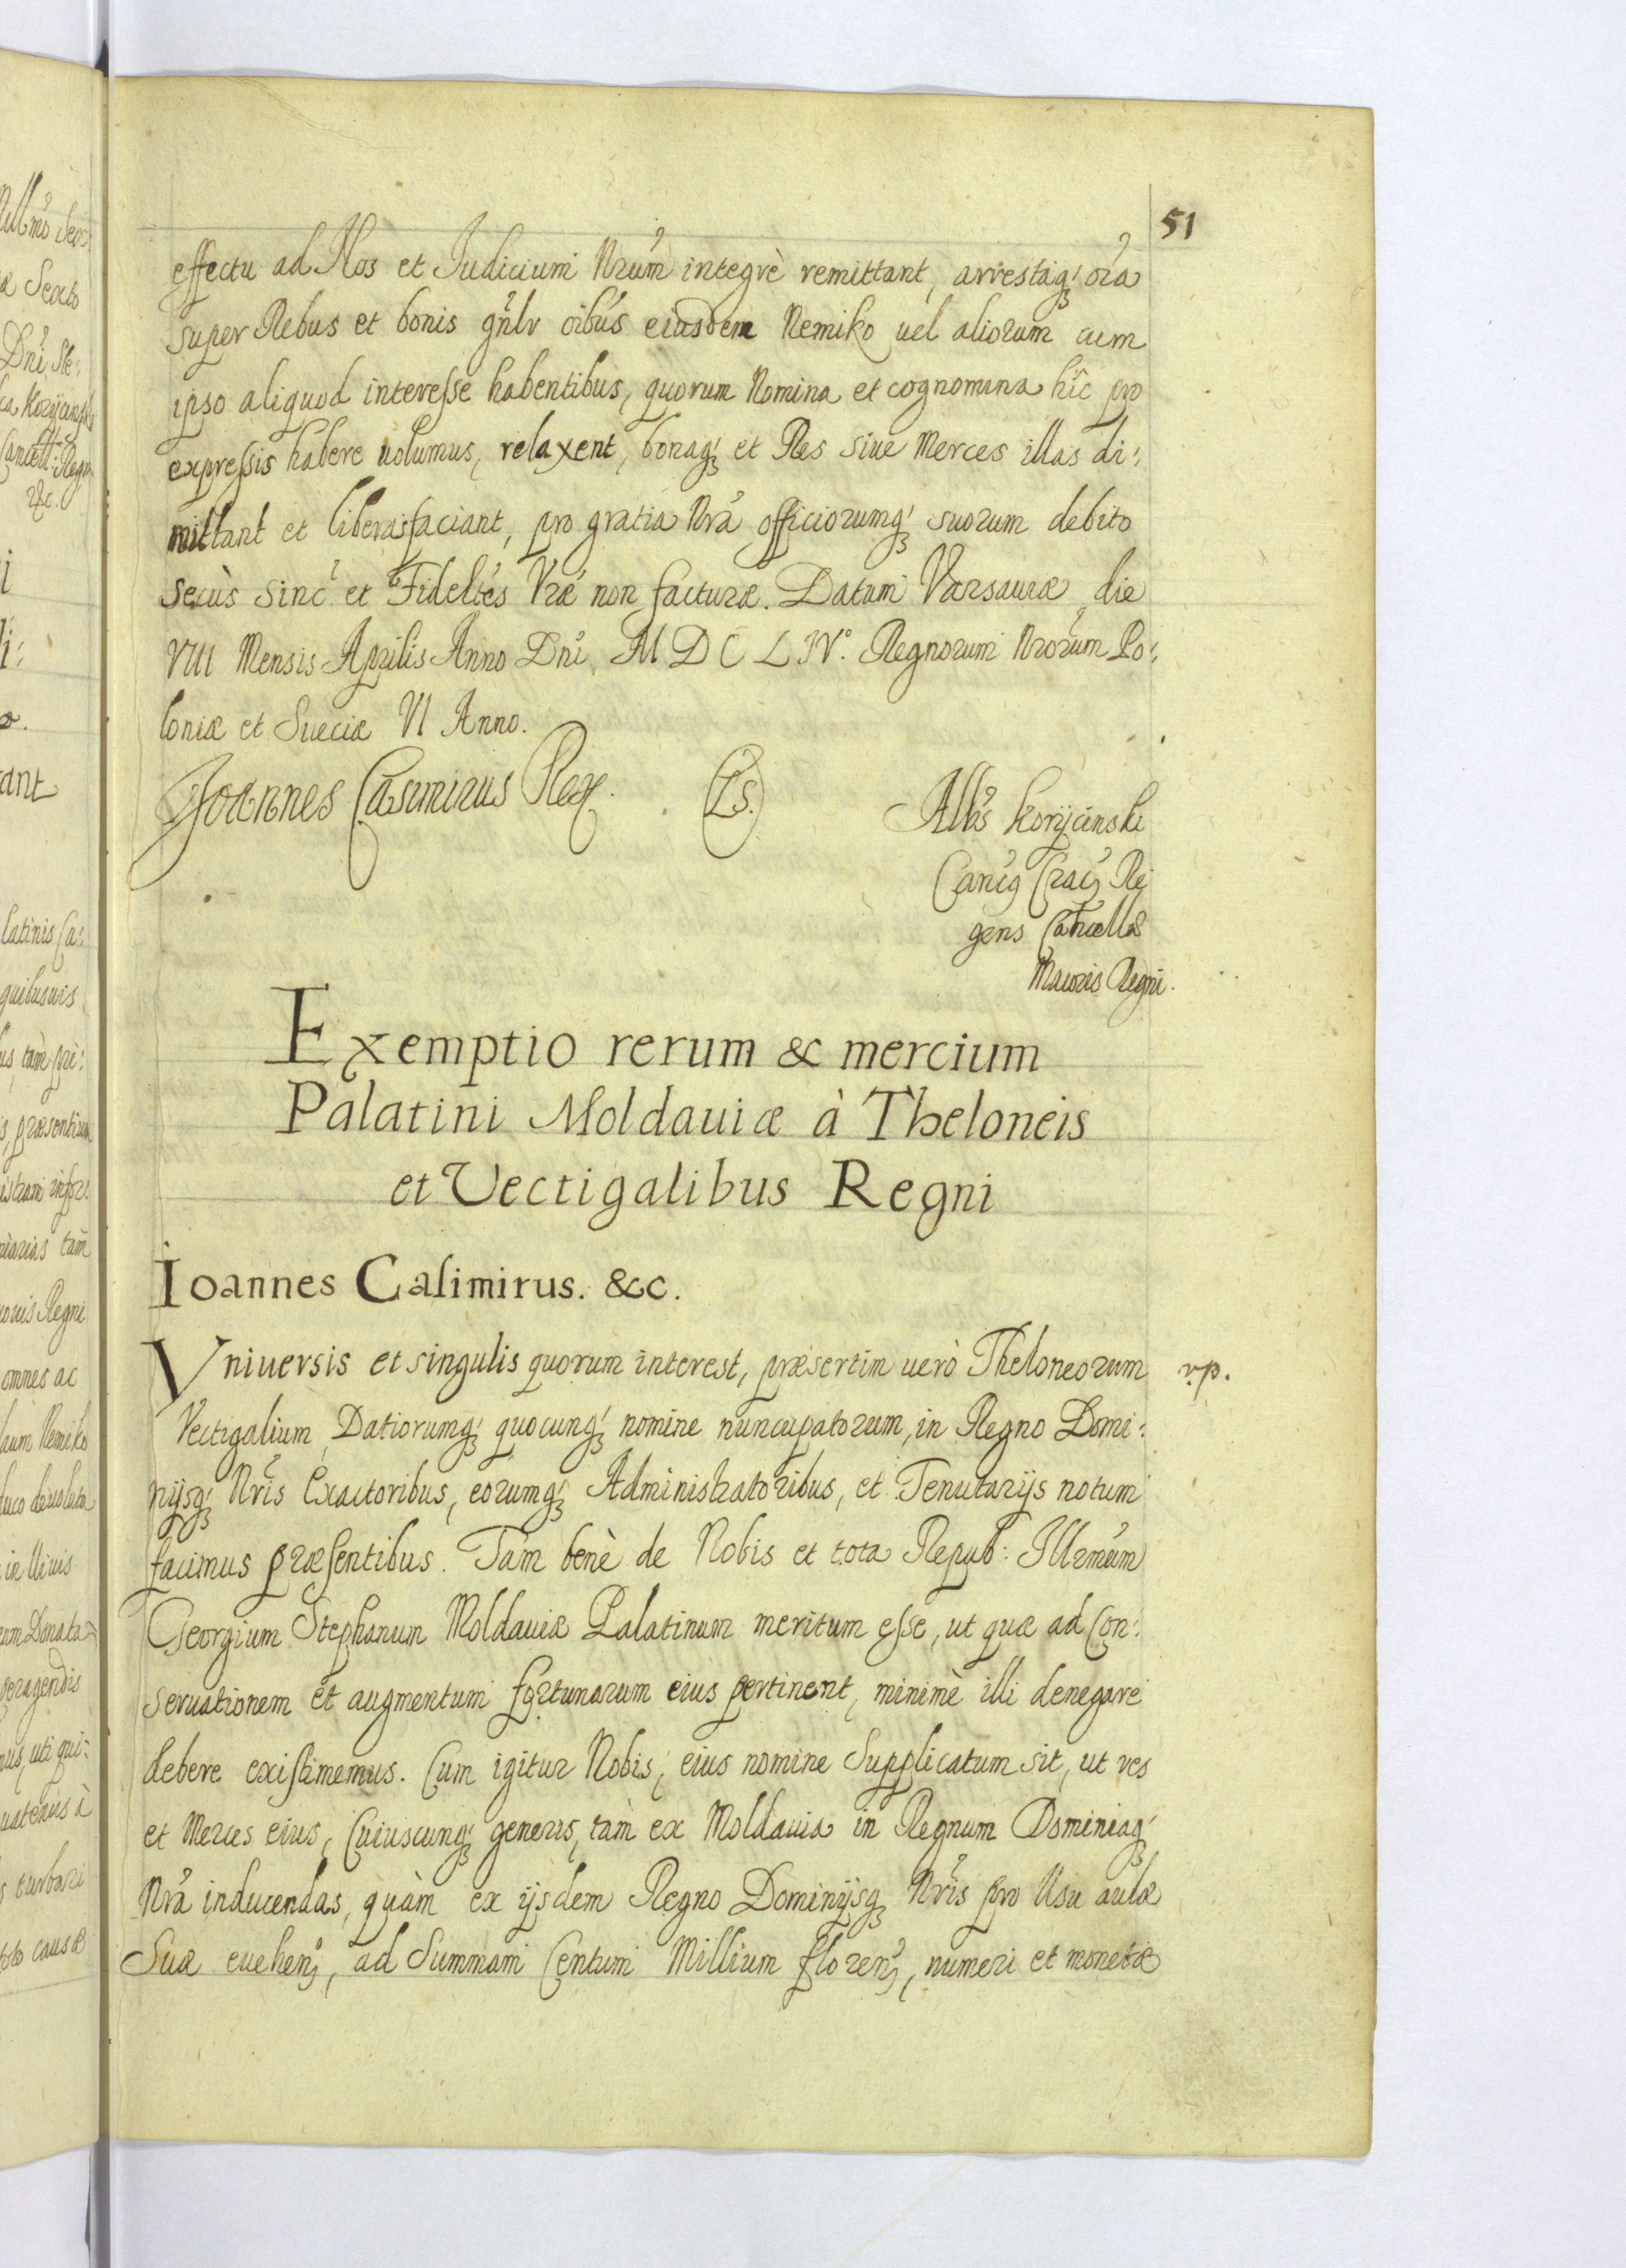 51
effectu ad Nos et Iudicium Nrum integrè remittant, arrestaq; oia
super Rebus et bonis gnlr oibus eiusdem Nemiko uel aliorum cum
ipso aliquod interesse habentibus, quorum Nomina et cognomina hîc pro
expressis habere uolumus, relaxent, bonaq; et Res siue Merces illas di:
mittant et liberas faciant, pro gratia Nra officiorumq; suorum debito
secùs Sinc et Fideltes Vræ non facturæ. Datum Varsauiæ die
VIII Mensis Aprilis Anno Dni M D C L IV.° Regnorum Nrorum Po:
loniæ et Sueciæ VI Anno.
Joannes Casimirus Rex. (LS.)
Albs Koryciński
Canus Crac Re
gens Cancellæ
Maioris Regni.
Exemptio rerum & mercium
Palatini Moldauiæ à Theloneis
et Vectigalibus Regni
Ioannes Casimirus. &c.
Vniuersis et singulis quorum interest, præsertim uerò Theloneorum
v.p.
Vectigalium Datiorumq; quocunq; nomine nuncupatorum, in Regno Domi:
nijsq; Nris Exactoribus, eorumq; Administratoribus, et Tenutarijs notum
facimus præsentibus. Tam benè de Nobis et tota Repub: Illrmum
Georgium Stephanum Moldauiæ Palatinum meritum esse, ut quæ ad Con:
seruationem et augmentum fortunarum eius pertinent, minimè illi denegare
debere existimemus. Cum igitur Nobis, eius nomine Supplicatum sit, ut res
et Merces eius, Cuiuscunq; generis, tàm ex Moldauia in Regnum Dominiaq;
Nra inducendas, quàm ex ijsdem Regno Dominijsq; Nris pro Usu aulæ
Suæ euehen, ad Summam Centum Millium floren, numeri et monetæ